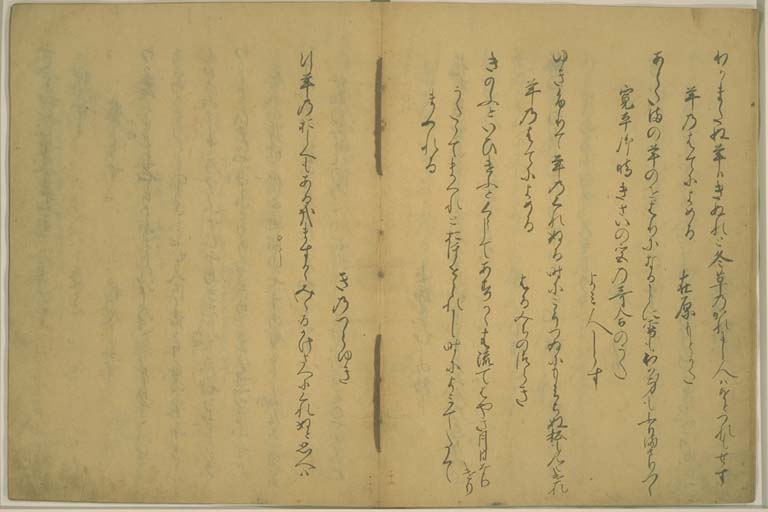 わかまたぬ年はきぬれと冬草のかれにし人はをとつれもせす
年のはてによめる 在原もとかた
あらたまの年のをはりになることに雪もわか身もふりまさりつゝ
寛平御時きさいの宮の哥合のうた
よみ人しらす
ゆきふりて年のくれぬる時にこそつゐにもみちぬ松も見えけれ
年のはてによめる はるみちのつらき
きのふといひけふとくらしてあすかゝは流てはやき月日なり
けり
うたたてまつれとおほせられし時によみてたて
まつれる
きのつらゆき
行年のおしくもある哉ますかゝみみるかけさへにくれぬと思へは